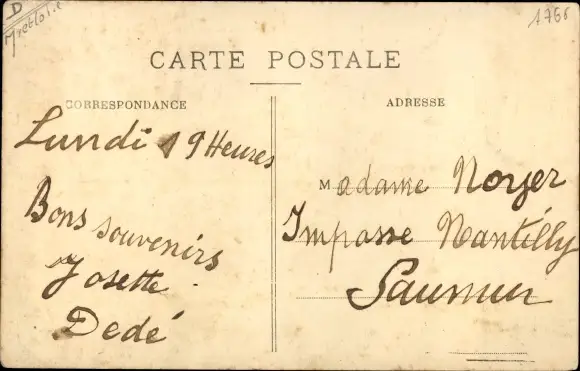 D
1766
CARTE POSTALE
CORRESPONDANCE
ADRESSE
Lundi 19 Heures
Bons souvenirs
Josette
Dedé
Madame Noyer
Impasse Nantilly
Saumur